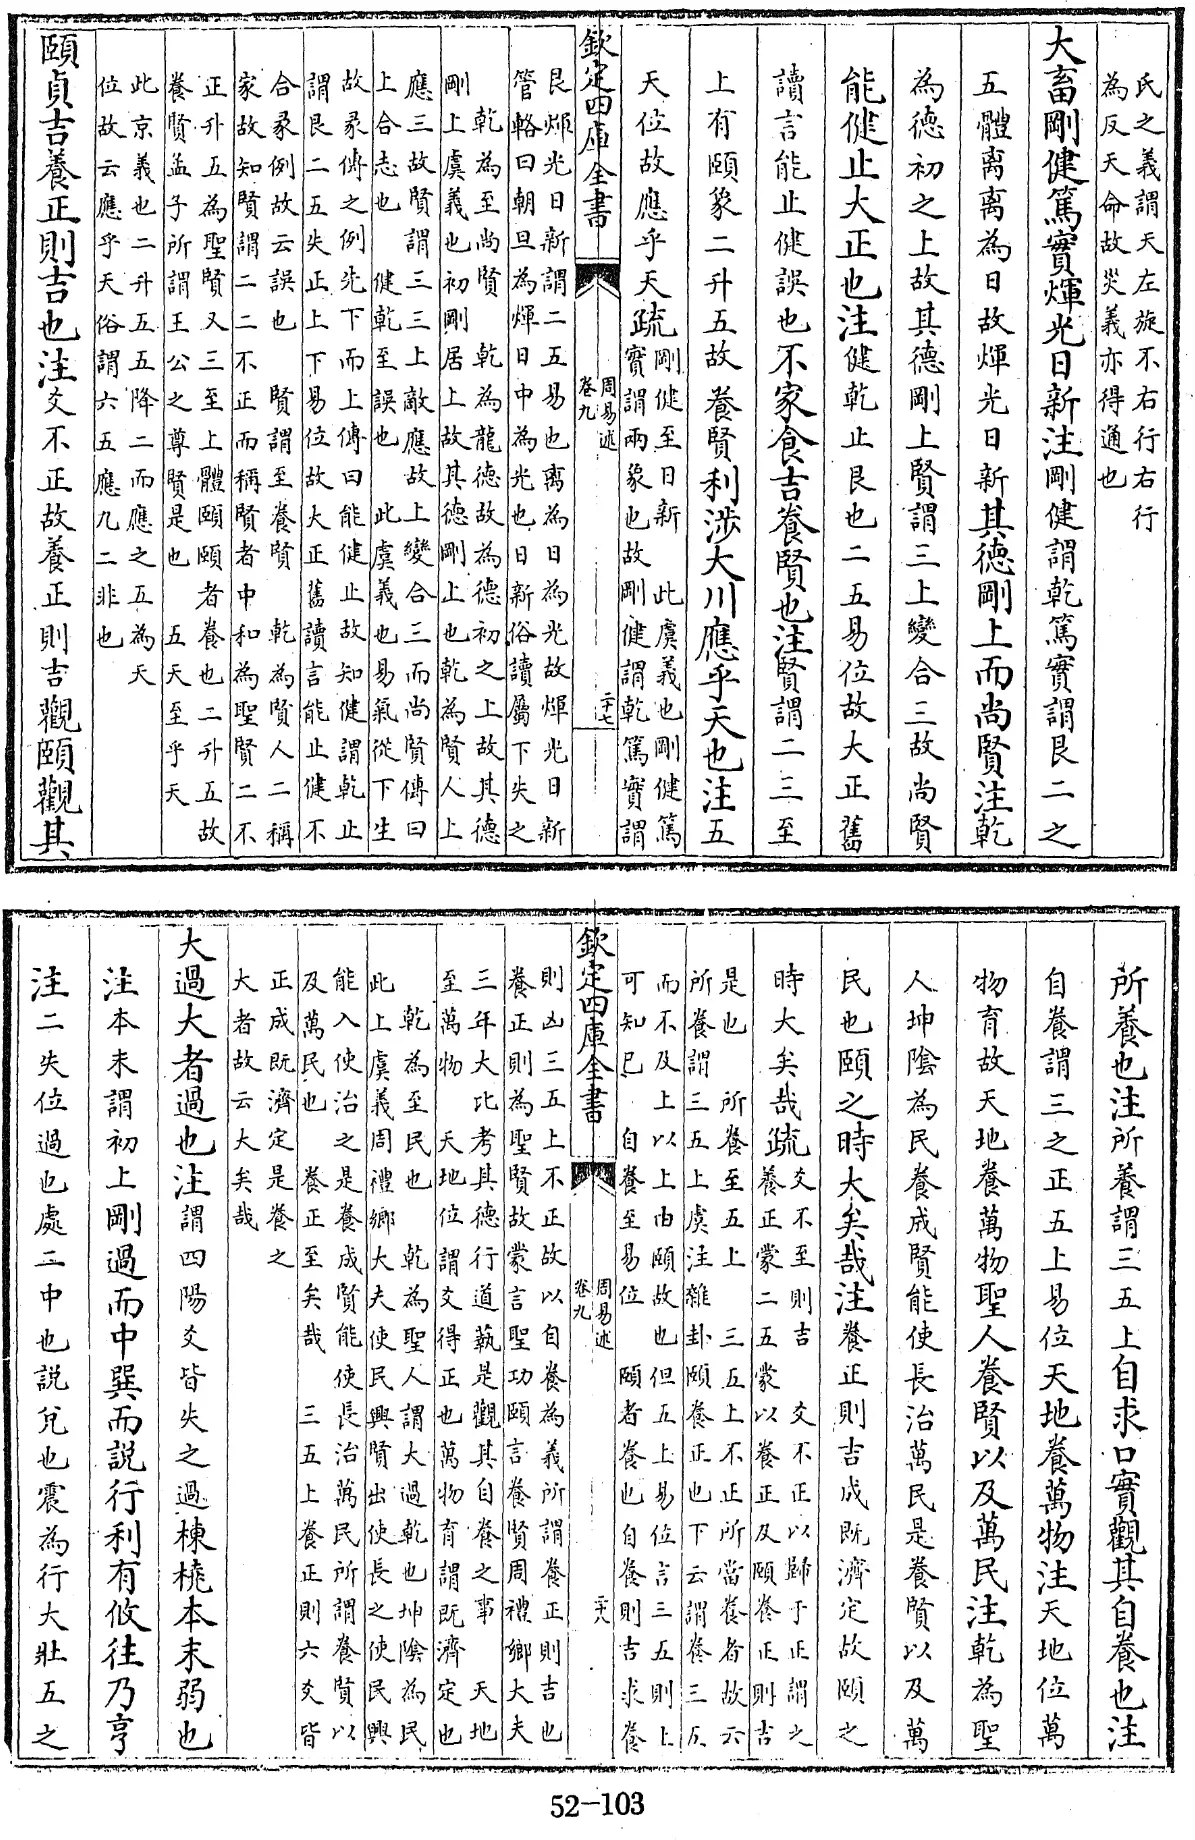 氏之義謂天左旋不右行右行
為反天命故災義亦得通也
大畜剛健篤實煇光日新注剛健謂乾篤實謂艮二之
五體离离為日故煇光日新其德剛上而尚賢注乾
為德初之上故其德剛上賢謂三上變合三故尚賢
能健止大正也注健乾止艮也二五易位故大正舊
讀言能止健誤也不家食吉養賢也注賢謂二三至
上有頤象二升五故養賢利涉大川應乎天也注五
天位故應乎天疏
剛健至日新　此虞義也剛健篤
實謂兩象也故剛健謂乾篤實謂
欽定四庫全書
周易述
卷九
二十七
艮煇光日新謂二五易也离為日為光故煇光日新
管輅曰朝旦為煇日中為光也日新俗讀屬下失之
乾為至尚賢　乾為龍德故為德初之上故其德
剛上虞義也初剛居上故其德剛上也乾為賢人上
應三故賢謂三三上敵應故上變合三而尚賢傳曰
上合志也　健乾至誤也　此虞義也易氣從下生
故彖傳之例先下而上傳曰能健止故知健謂乾止
謂艮二五失正上下易位故大正舊讀言能止健不
合彖例故云誤也　賢謂至養賢　乾為賢人二稱
家故知賢謂二二不正而稱賢者中和為聖賢二不
正升五為聖賢又三至上體頤頤者養也二升五故
養賢孟子所謂王公之尊賢是也　五天至乎天
此京義也二升五五降二而應之五為天
位故云應乎天俗謂六五應九二非也
頤貞吉養正則吉也注爻不正故養正則吉觀頤觀其
所養也注所養謂三五上自求口實觀其自養也注
自養謂三之正五上易位天地養萬物注天地位萬
物育故天地養萬物聖人養賢以及萬民注乾為聖
人坤陰為民養成賢能使長治萬民是養賢以及萬
民也頤之時大矣哉注養正則吉成既濟定故頤之
時大矣哉疏
爻不至則吉　爻不正以歸于正謂之
養正蒙二五蒙以養正及頤養正則吉
是也　所養至五上　三五上不正所當養者故六
所養謂三五上虞注雜卦頤養正也下云謂養三五
而不及上以上由頤故也但五上易位言三五則上
可知已　自養至易位　頤者養也自養則吉求養
欽定四庫全書
周易述
卷九
二十八
則凶三五上不正故以自養為義所謂養正則吉也
養正則為聖賢故蒙言聖功頤言養賢周禮鄉大夫
三年大比考其德行道藝是觀其自養之事　天地
至萬物　天地位謂爻得正也萬物育謂既濟定也
乾為至民也　乾為聖人謂大過乾也坤陰為民
此上虞義周禮鄉大夫使民興賢出使長之使民興
能入使治之是養成賢能使長治萬民所謂養賢以
及萬民也　養正至矣哉　三五上養正則六爻皆
正成既濟定是養之
大者故云大矣哉
大過大者過也注謂四陽爻皆失之過棟橈本末弱也
注本末謂初上剛過而中巽而説行利有攸往乃亨
注二失位過也處二中也説兌也震為行大壯五之
52-103